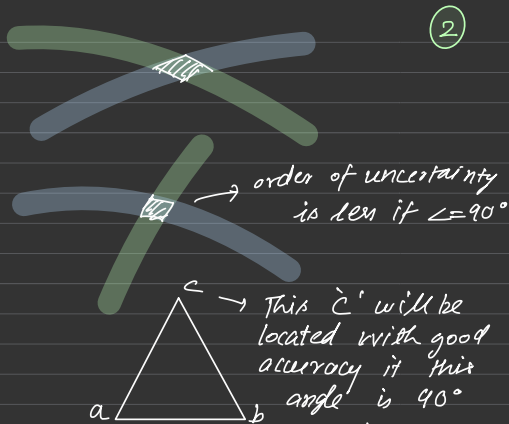 2
order of uncertainty
is less if ∠=90°
c → This 'c' will be
located with good
accuracy if this
angle is 90°
a b